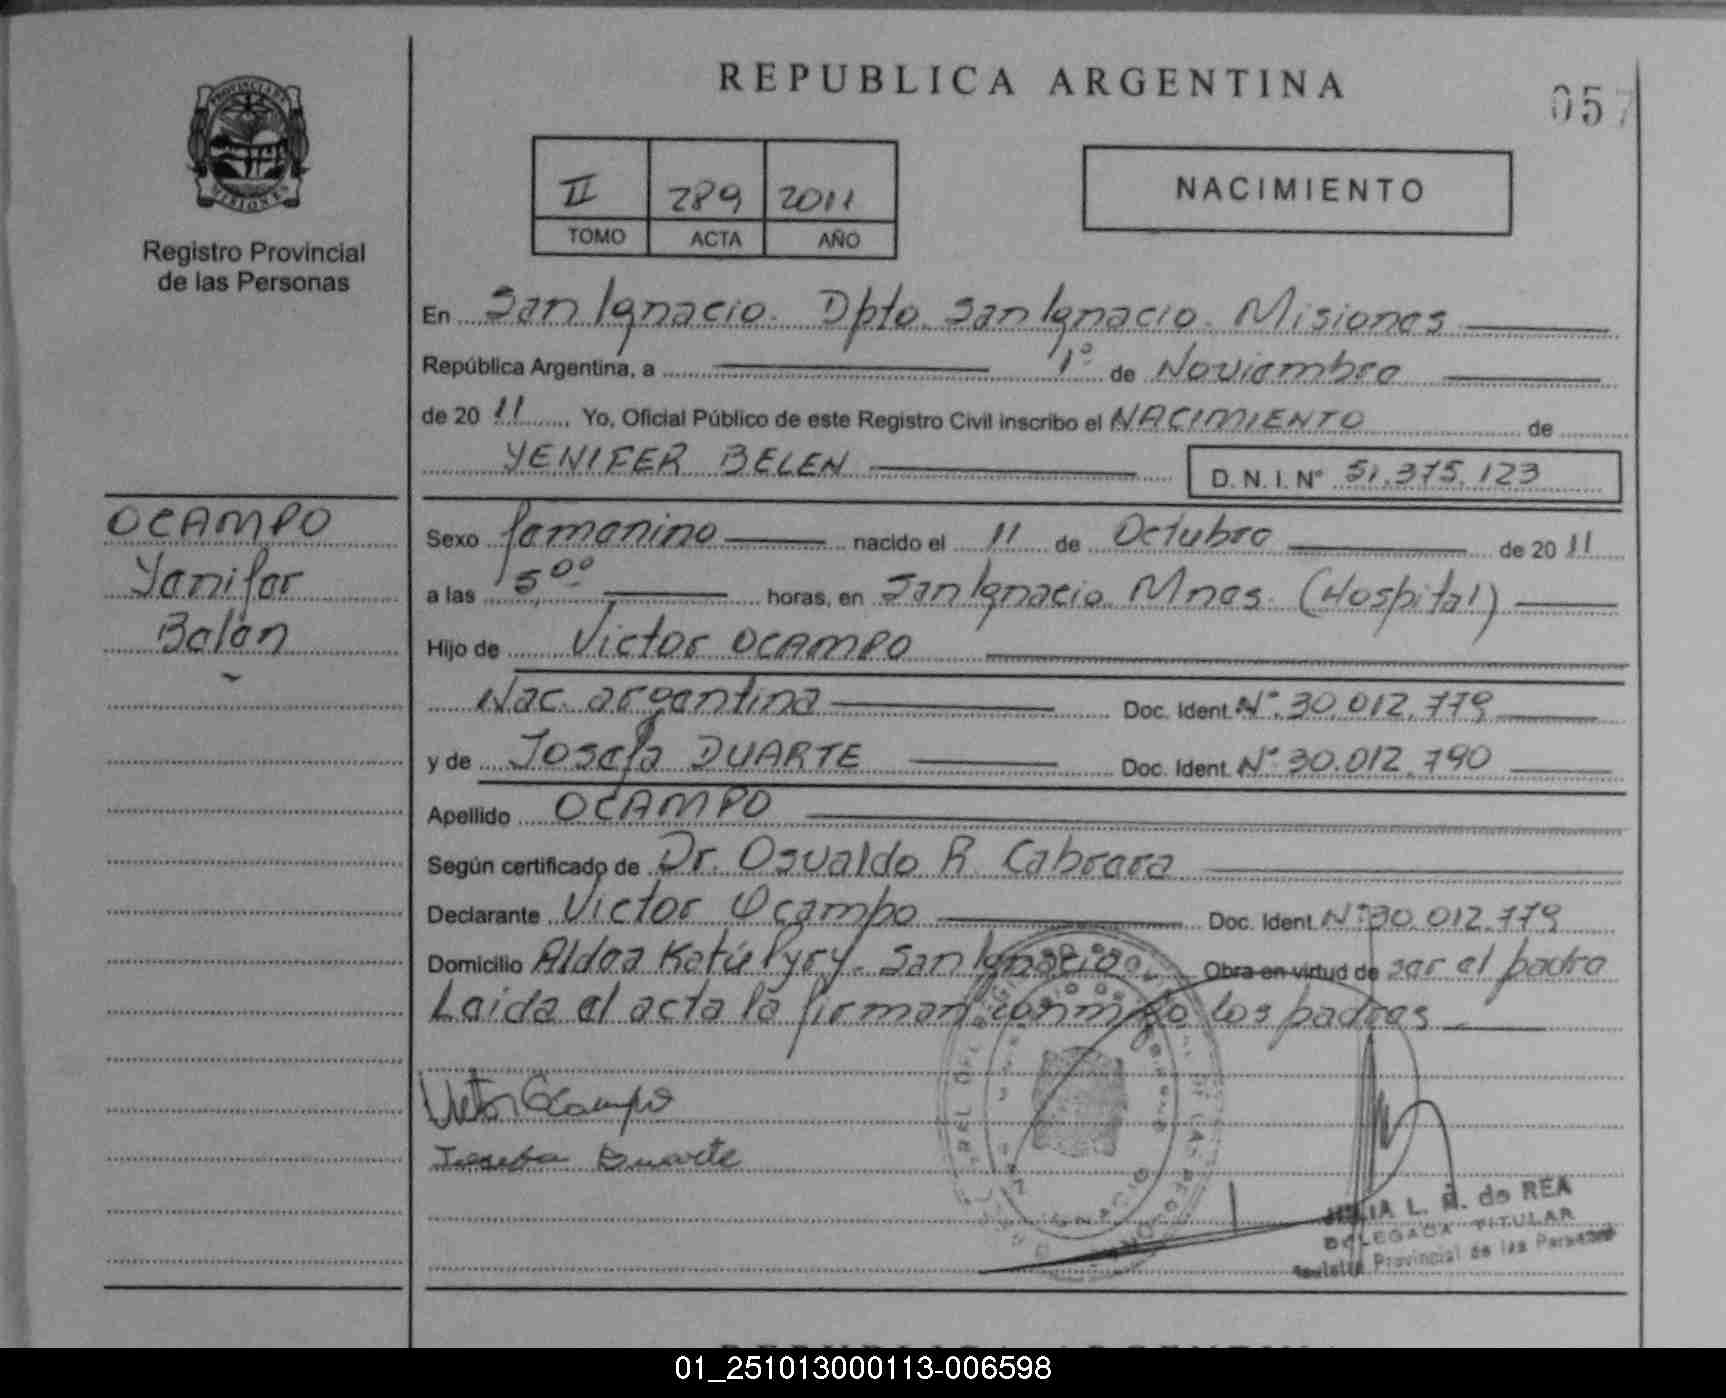 REPUBLICA ARGENTINA
057
Registro Provincial
de las Personas
II 289 2011
TOMO ACTA AÑO
NACIMIENTO
En San Ignacio. Dpto. San Ignacio. Misiones
República Argentina, a 1º de Noviembre
de 20 11 Yo, Oficial Público de este Registro Civil inscribo el NACIMIENTO de
YENIFER BELEN D. N. I. Nº 51.375.123
OCAMPO
Yenifer
Belén
Sexo femenino nacido el 11 de Octubre de 20 11
a las 5º⁰ horas, en San Ignacio Mnes. (Hospital)
Hijo de Victor OCAMPO
Nac. argentina Doc. Ident. Nº 30.012.779
y de Josefa DUARTE Doc. Ident. Nº 30.012.790
Apellido OCAMPO
Según certificado de Dr. Osvaldo R. Cabrera
Declarante Victor Ocampo Doc. Ident. Nº 30.012.779
Domicilio Aldea Katú Pyry. San Ignacio Obra en virtud de ser el padre
Leida el acta la firman conmigo los padres
Victor Ocampo
Josefa Duarte
L. R. de REA
DELEGADA TITULAR
Provincial de las Personas
01_251013000113-006598